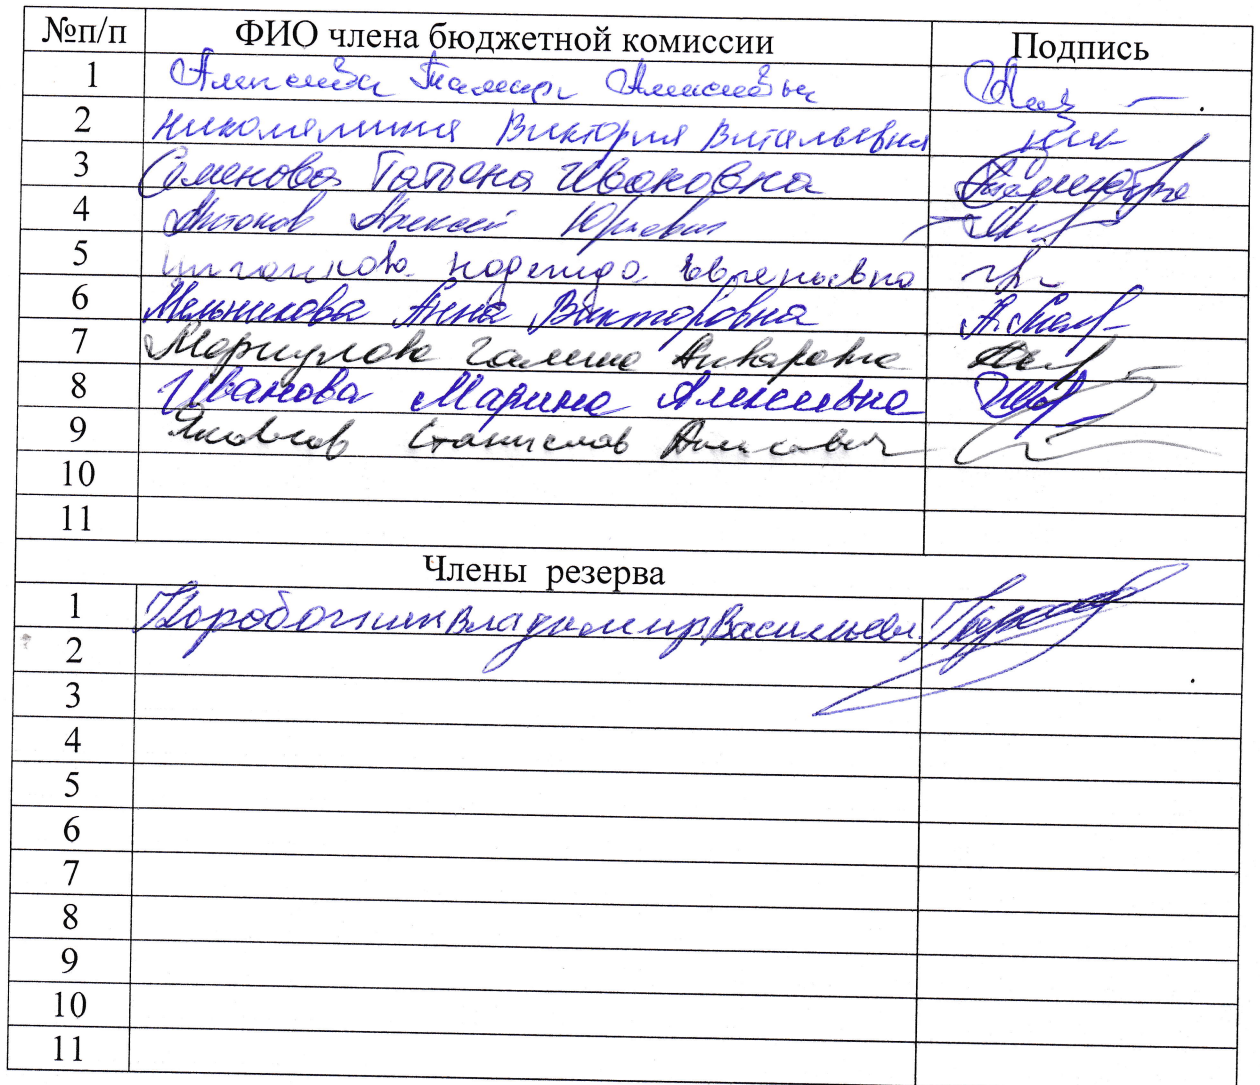 №п/п ФИО члена бюджетной комиссии Подпись
1 Алексеева Тамара Алексеевна
2 Николашина Виктория Витальевна
3 Семенова Татьяна Ивановна
4 Антонов Алексей Юрьевич
5 Цыганкова Надежда Евгеньевна
6 Мельникова Анна Викторовна
7 Галина Анваровна
8 Иванова Марина Алексеевна
9 Яковлев Станислав
10
11
Члены резерва
1 Владимир Васильеви
2
3
4
5
6
7
8
9
10
11